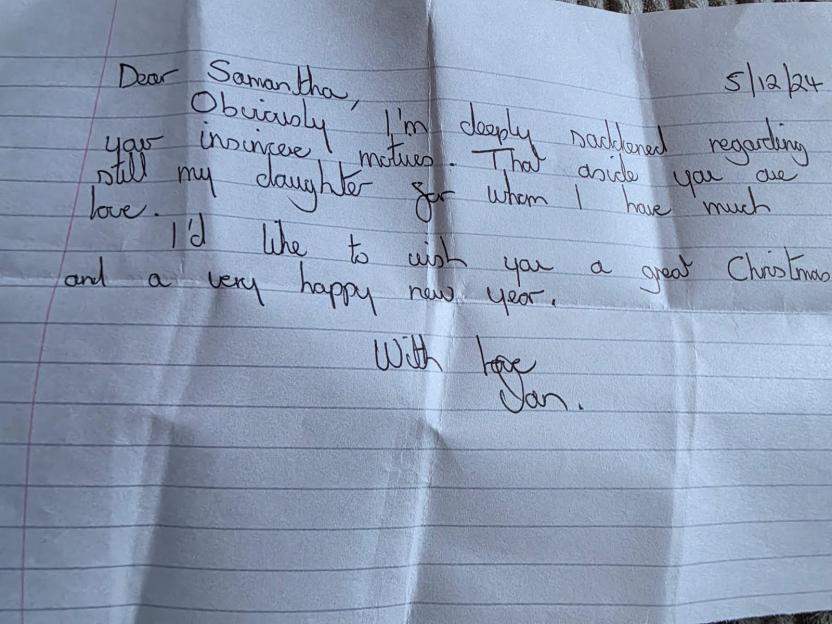 5/12/24
Dear Samantha,
Obviously I'm deeply saddened regarding
your insincere motives. That aside you are
still my daughter for whom I have much
love.
I'd like to wish you a great Christmas
and a very happy new year.
With love
Jan.